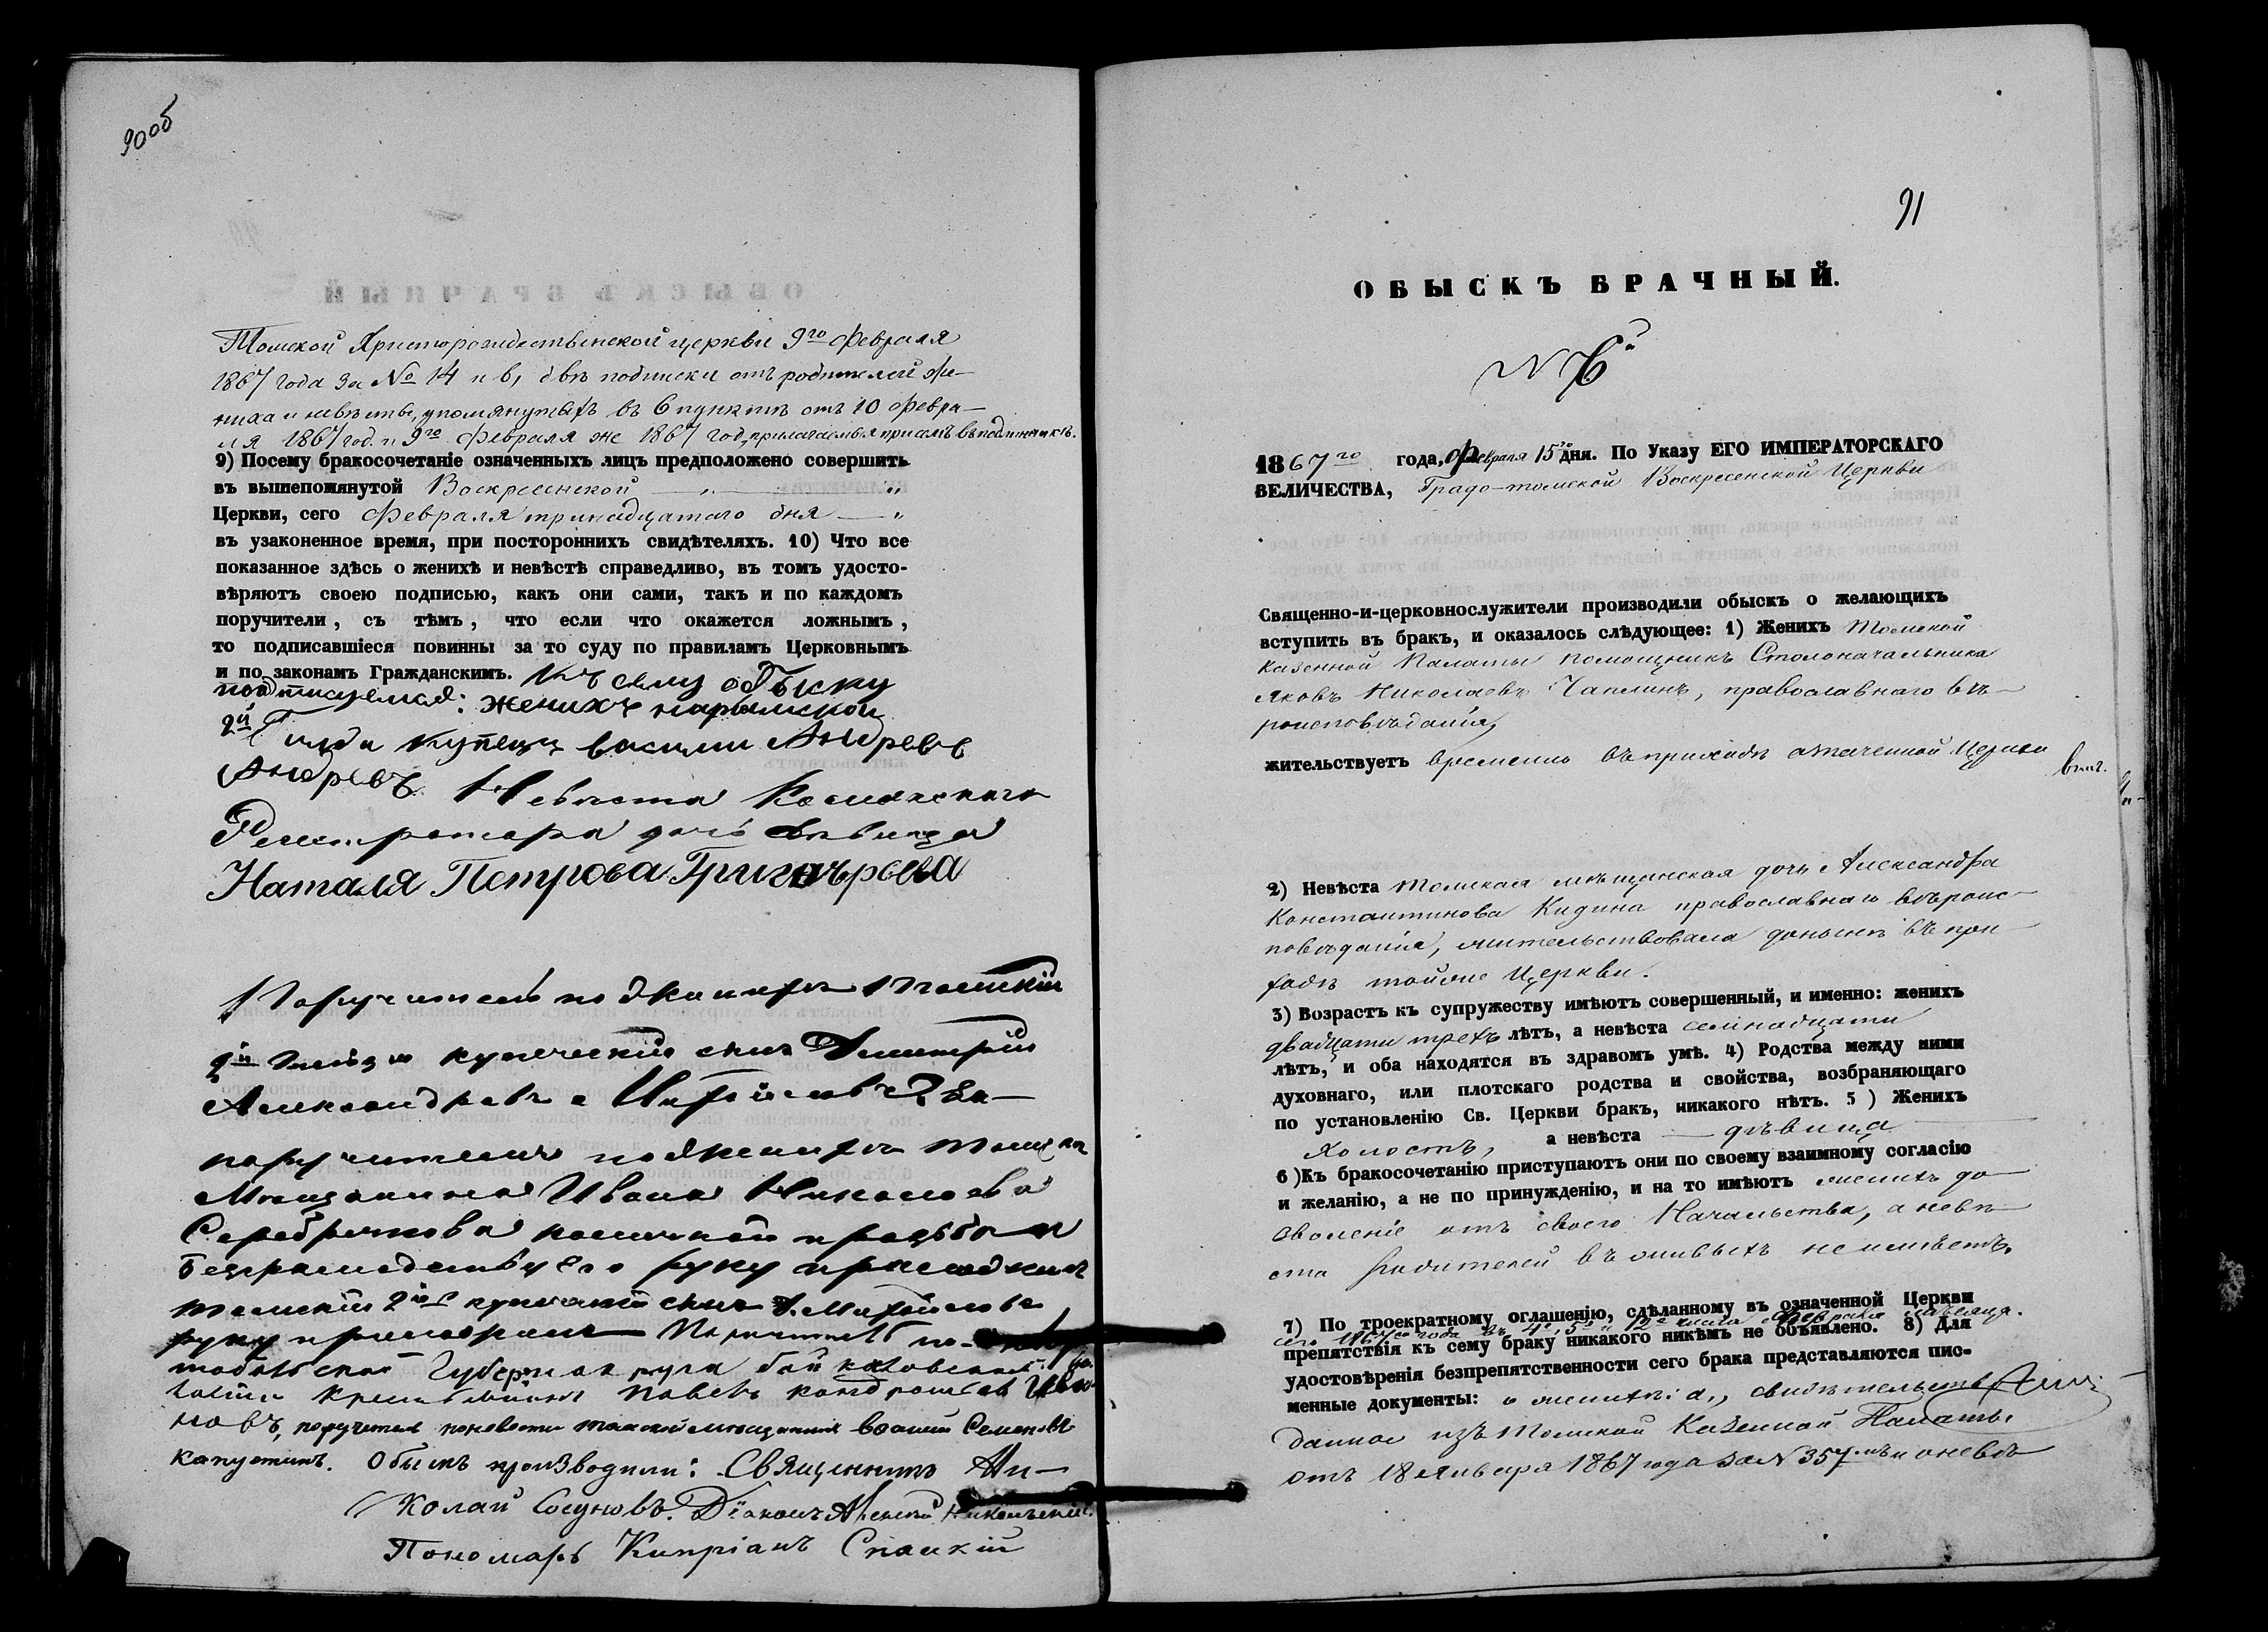 90об
Томской Христорождественской церкви 9го Февраля
1867 года за № 14 и в, двѣ подписки отъ родителей же-
ниха и невѣсты, упомянутыхъ въ 6 пунктѣ отъ 10 Февра-
ля 1867 год. и 9го Февраля же 1867 год, прилагаемыя при семъ въ подлинникѣ.
9) Посему бракосочетаніе означенныхъ лицъ предположено совершить
въ вышепомянутой Воскресенской — „ — „
Церкви, сего Февраля тринадцатаго дня — „
въ узаконенное время, при постороннихъ свидѣтеляхъ. 10) Что все
показанное здѣсь о женихѣ и невѣстѣ справедливо, въ томъ удосто-
вѣряютъ своею подписью, какъ они сами, такъ и по каждомъ
поручители, съ тѣмъ, что если что окажется ложнымъ,
то подписавшіеся повинны за то суду по правиламъ Церковнымъ
и по законамъ Гражданскимъ. Къ сему обыску
подписуемся: женихъ нарымской
2й Гильди купецъ василии Андреевъ
Андревъ. Невѣста Колежскаго
Регистратора дочь Девица
Наталя Петрова Григорърева
Поручитель по женихѣ Томскій
2й Гильди купеческій сынъ Дмитрій
Александровъ
поручителя по женихѣ томскаго
Мѣщанина Ивана Николаева
Серебреникова по личной прозбѣ
руку приложилъ
томскій 2й купеческій сынъ
руку приложилъ Поручитель по
тобольской Губерни округа
Крестьянин Павелъ кондратьев Ива-
новъ, поручитель по невесте томской мещанинъ Семеновъ
Капустинъ. Обыскъ производили: Священникъ Ни-
колай Сосуновъ. Діаконъ Алексѣй Никольскій.
Пономарь Кипріанъ Спасскій
91
ОБЫСКЪ БРАЧНЫЙ.
№ 6й
1867го года, Февраля 15го дня. По Указу ЕГО ИМПЕРАТОРСКАГО
ВЕЛИЧЕСТВА, Градо-томской Воскресенской Церкви
Священно-и-церковнослужители производили обыскъ о желающихъ
вступить въ бракъ, и оказалось слѣдующее: 1) Женихъ Томской
Казенной Палаты помощникъ Столоначальника
Яковъ Николаевъ Чаплинъ, православнаго вѣ-
роисповѣданія,
жительствуетъ временно въ приходѣ означенной Церкви
2) Невѣста томская мѣщанская дочь Александра
Константинова Кидина православнаго вѣроис-
повѣданія, жительствовала донынѣ въ при
ходѣ тойже Церкви.
3) Возрастъ къ супружеству имѣютъ совершенный, и именно: женихъ
двадцати трехъ лѣтъ, а невѣста семнадцати
лѣтъ, и оба находятся въ здравомъ умѣ. 4) Родства между ними
духовнаго, или плотскаго родства и свойства, возбраняющаго
по установленію Св. Церкви бракъ, никакого нѣтъ. 5) Женихъ
холостъ, а невѣста — дѣвица
6)Къ бракосочетанію приступаютъ они по своему взаимному согласію
и желанію, а не по принужденію, и на то имѣютъ женихъ до
зволеніе отъ своего Начальства, а невѣ
ста родителей въ живыхъ не имѣетъ.
7) По троекратному оглашенію, сдѣланному въ означенной Церкви
сего 1867го года въ 4е, 5е и 12е числа Февраля мѣсяца.
препятствія къ сему браку никакого никѣмъ не объявлено. 8) Для
удостовѣренія безпрепятственности сего брака представляются пис-
менные документы: о женихѣ: а., свидѣтельство
данное изъ Томской Казенной Палаты
отъ 18 Января 1867 года за № 357мъ и о невѣ